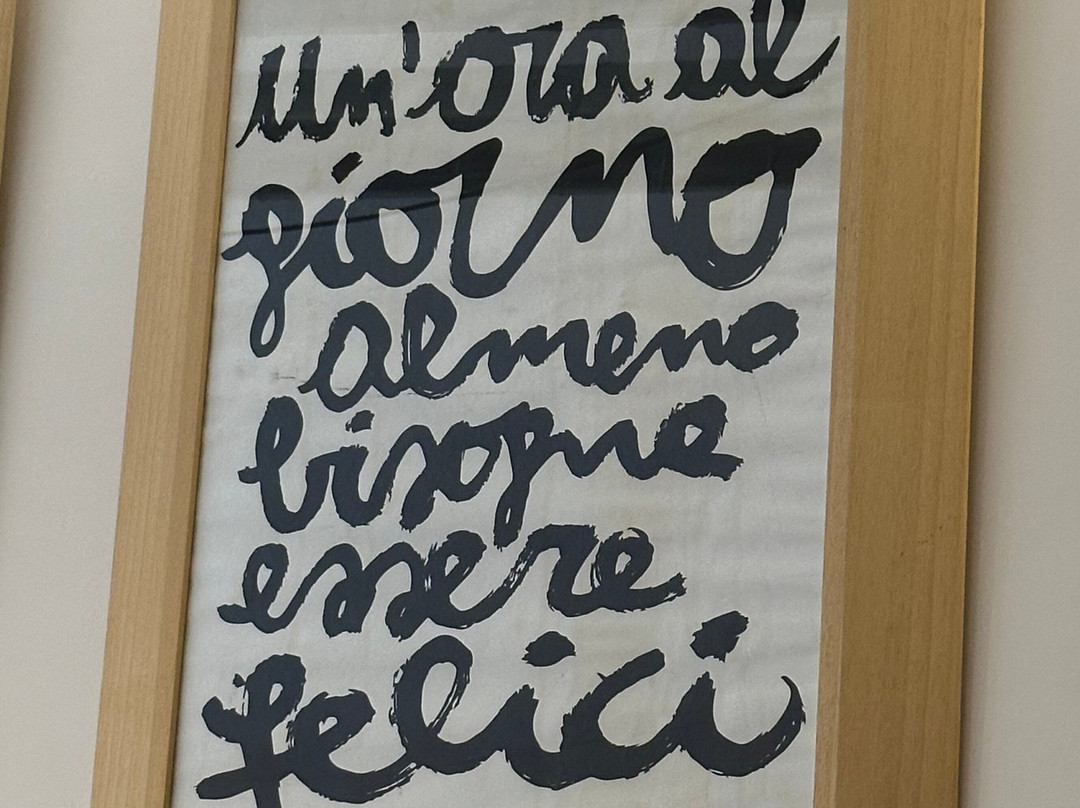 un'ora al
giorno
almeno
bisogna
essere
felici